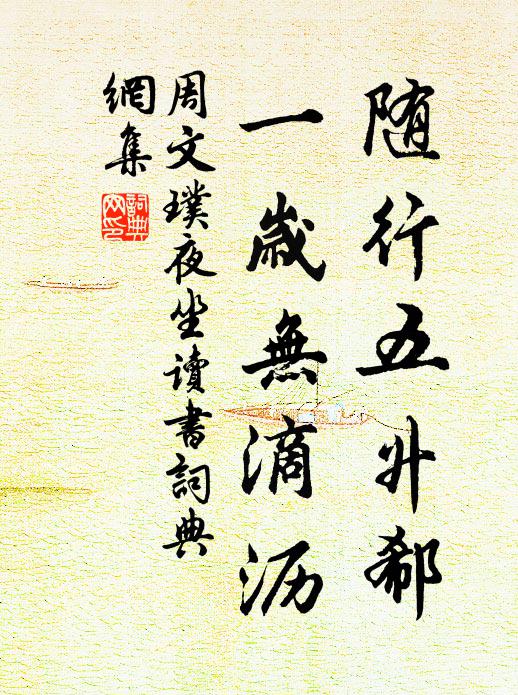 随行五升郗
一歲無滴沥
周文璞夜坐讀書詞典
網集
詞典
网印